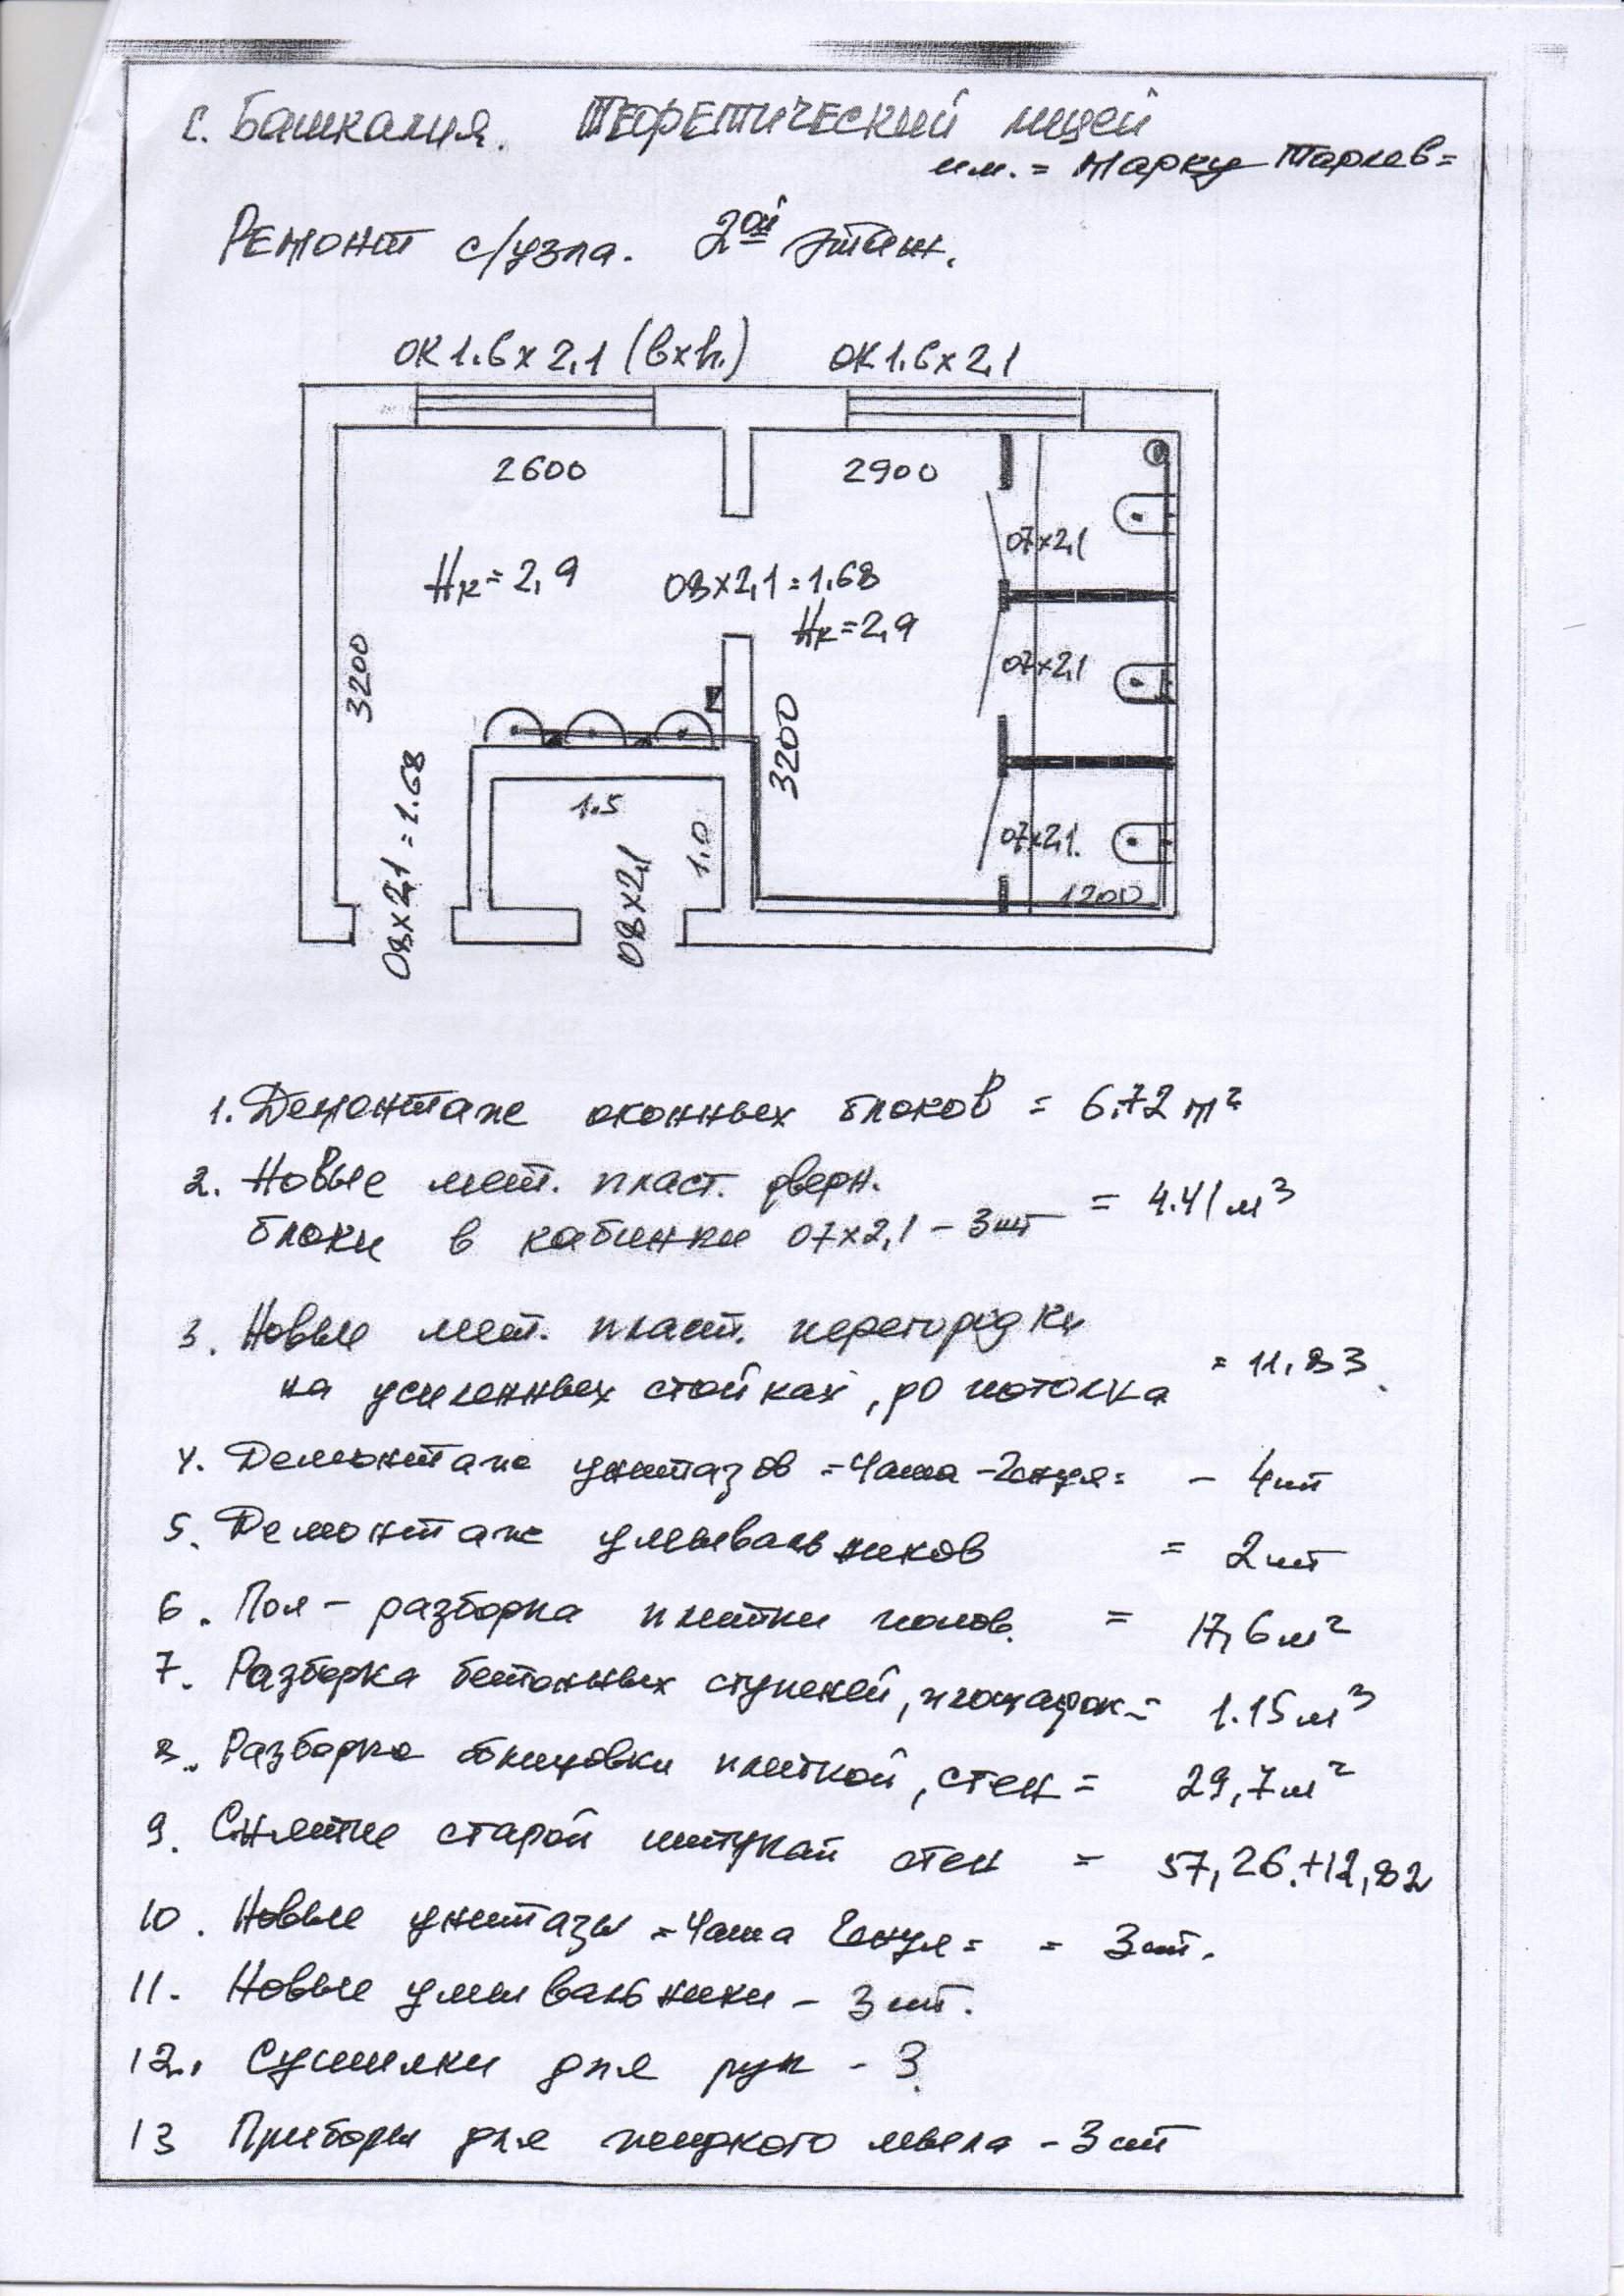 с. Башкалия. Теоретический лицей
им. = Марку Тарлев=
Ремонт с/узла. 2ой этаж.
ОК 1.6 х 2,1 (bxh.) ОК 1.6 х 2,1
2600 2900
07х2,1
Нк = 2,9 08х2,1 = 1.68
Нк = 2,9
3200 07х2,1
3200
1.5
07х2,1.
1,0
08х2,1 = 1.68
08х2,1
1200
1. Демонтаж оконных блоков = 6.72 м²
2. Новые мет. пласт. дверн.
блоки в кабинки 07х2,1 – 3шт = 4.41 м³
3. Новые мет. пласт. перегородки
на усиленных стойках, до потолка = 11,83.
4. Демонтаж унитазов = Чаша - Генуя = - 4шт
5. Демонтаж умывальников = 2шт
6. Пол – разборка плитки полов. = 17,6 м²
7. Разборка бетонных ступеней, площадок = 1.15 м³
8. Разборка облицовки плиткой, стен = 29,7 м²
9. Снятие старой штукат стен = 57,26.+12,82
10. Новые унитазы = Чаша Генуя = = 3шт.
11. Новые умывальники – 3шт.
12. Сушилки для рук - 3
13 Приборы для жидкого мыла - 3шт